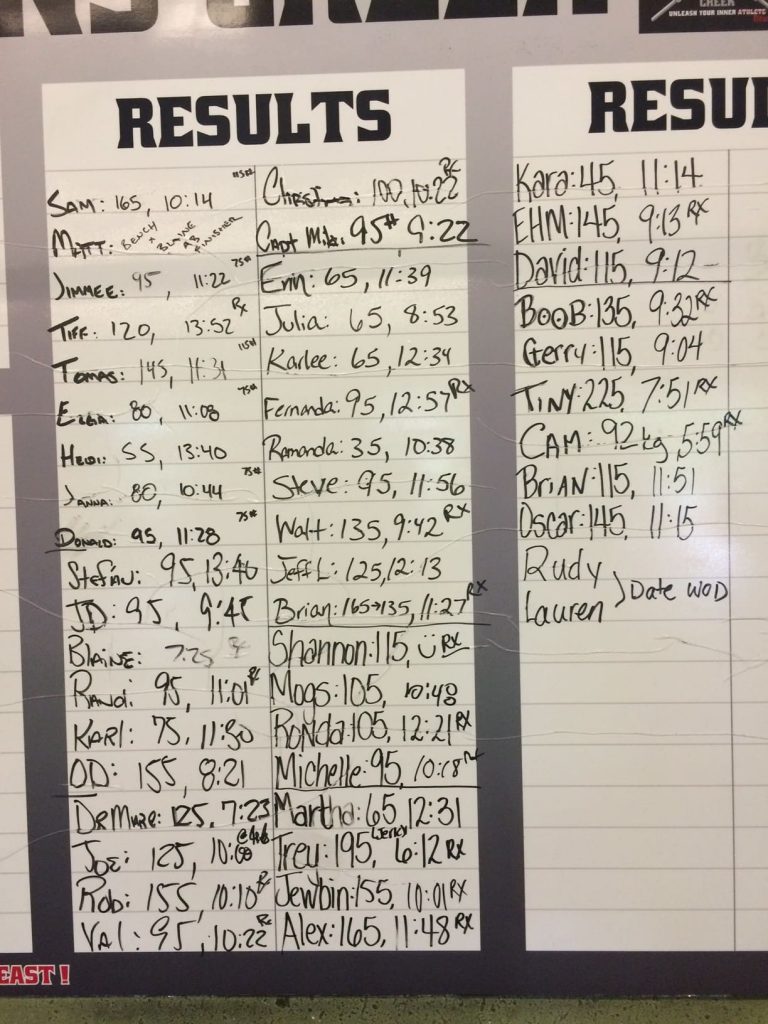 CREEK
UNLEASH YOUR INNER ATHLETE
RESULTS
SAM: 165, 10:14 115#
MATT: BENCH + BLAINE AB FINISHER
JIMMEE: 95, 11:22 75#
TIFF: 120, 13:52 RX
TOMAS: 145, 11:31 115#
80, 11:08 75#
HEIDI: 55, 13:40
JANNA: 80, 10:44 75#
DONALD: 95, 11:28 75#
STEFAN: 95, 13:40
JD: 95, 9:45
BLAINE: 7:25 RX
RANDI: 95, 11:01 RX
KARL: 75, 11:30
OD: 155, 8:21
125, 7:23
JOE: 125,
Rob: 155, 10:10 RX
VAL: 95, 10:22 RX
Christina: 100, 10:22 RX
Capt Mike: 95# 9:22
Erin: 65, 11:39
Julia: 65, 8:53
Karlee: 65, 12:34
Fernanda: 95, 12:57 RX
Ramanda: 35, 10:38
Steve: 95, 11:56
Walt: 135, 9:42 RX
Jeff L: 125, 12:13
Brian: 165→135, 11:27 RX
Shannon: 115, RX
Mogs: 105, 10:48
Ronda: 105, 12:21 RX
Michelle: 95, 10:18 RX
Martha: 65, 12:31
Trey: 195, (Jerky) 6:12 RX
Jewbin: 155, 10:01 RX
Alex: 165, 11:48 RX
RESU
Kara: 45, 11:14
EHM: 145, 9:13 RX
David: 115, 9:12
BOOB: 135, 9:32 RX
Gerry: 115, 9:04
TINY: 225, 7:51 RX
CAM: 92 kg, 5:59 RX
BRIAN: 115, 11:51
Oscar: 145, 11:15
Rudy
Lauren } Date WOD
EAST!